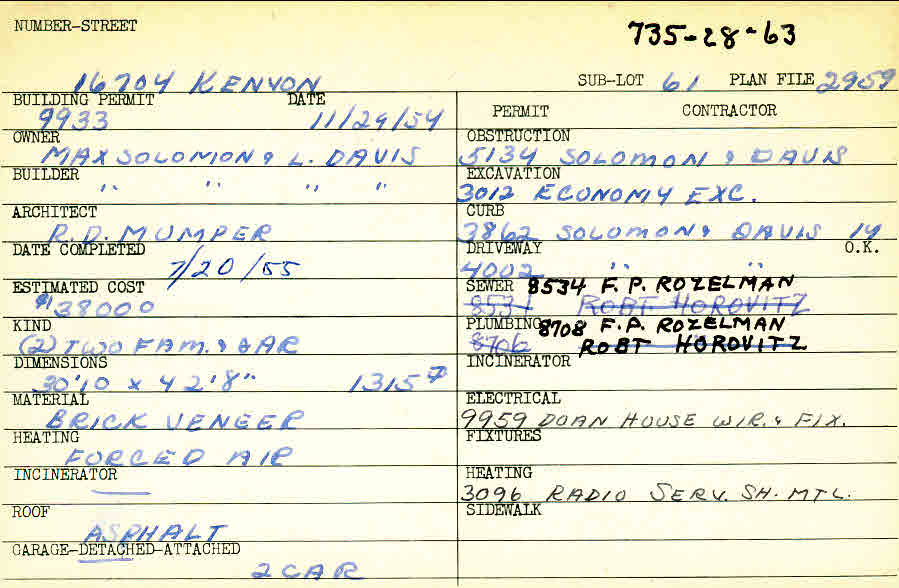 NUMBER-STREET
735-28-63
16704 KENYON
SUB-LOT 61 PLAN FILE 2959
BUILDING PERMIT DATE
9933 11/29/54
OWNER
MAX SOLOMON & L. DAVIS
BUILDER
" " " "
ARCHITECT
R.D. MUMPER
DATE COMPLETED
7/20/55
ESTIMATED COST
$38000
KIND
(2) TWO FAM. & GAR
DIMENSIONS
30'10 x 42'8" 1315
MATERIAL
BRICK VENEER
HEATING
FORCED AIR
INCINERATOR
—
ROOF
ASPHALT
GARAGE-DETACHED-ATTACHED
2 CAR
PERMIT CONTRACTOR
OBSTRUCTION
5134 SOLOMON & DAVIS
EXCAVATION
3012 ECONOMY EXC.
CURB
3862 SOLOMON & DAVIS 14
DRIVEWAY O.K.
4002 " "
SEWER 8534 F. P. ROZELMAN
8531 ROBT HOROVITZ
PLUMBING 8708 F. P. ROZELMAN
8706 ROBT HOROVITZ
INCINERATOR
ELECTRICAL
9959 DOAN HOUSE WIR. & FIX.
FIXTURES
HEATING
3096 RADIO SERV. SH. MTL.
SIDEWALK